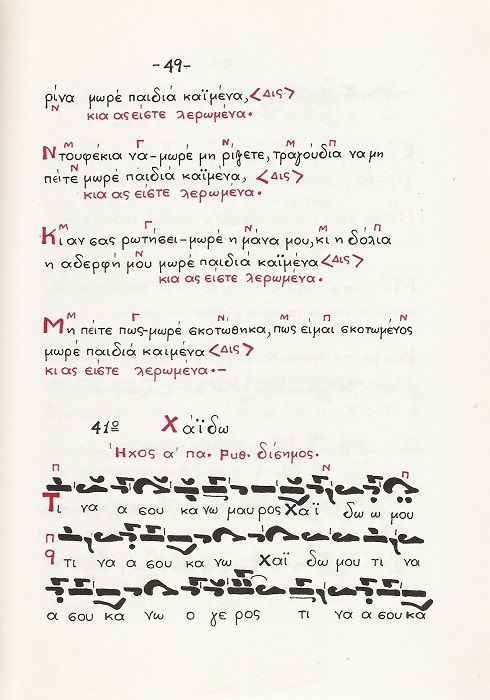 -49-
ρίνα μωρέ παιδιά καϊμένα, <Δις>
Ν
κια ας είστε λερωμένα.
Μ Γ Ν Μ Π
Ντουφέκια να-μωρέ μη ρίξετε, τραγούδια να μη
πείτε μωρέ παιδιά καϊμένα, <Δις>
Ν
κια ας είστε λερωμένα.
Μ Γ Ν Μ Π
Κι αν σας ρωτήσει-μωρέ η μάνα μου, κι η δόλια
η αδερφή μου μωρέ παιδιά καϊμένα <Δις>
Ν
κια ας είστε λερωμένα.
Μ Γ Ν Μ Π Ν
Μη πείτε πως-μωρέ σκοτωθηκα, πως είμαι σκοτωμένος
μωρέ παιδιά καιμένα <Δις>
κι ας είστε λερωμένα.-
41º Χάϊδω
Ήχος α' πα. Ρυθ. δίσημος.
Π Ν Π
Τι να α σου κα νω μαυ ρος Χαϊ δω ω μου
Π
q τι να α σου κα νω Χαϊ δω μου τι να
α σου κα νω ο γε ρος τι να α σου κα